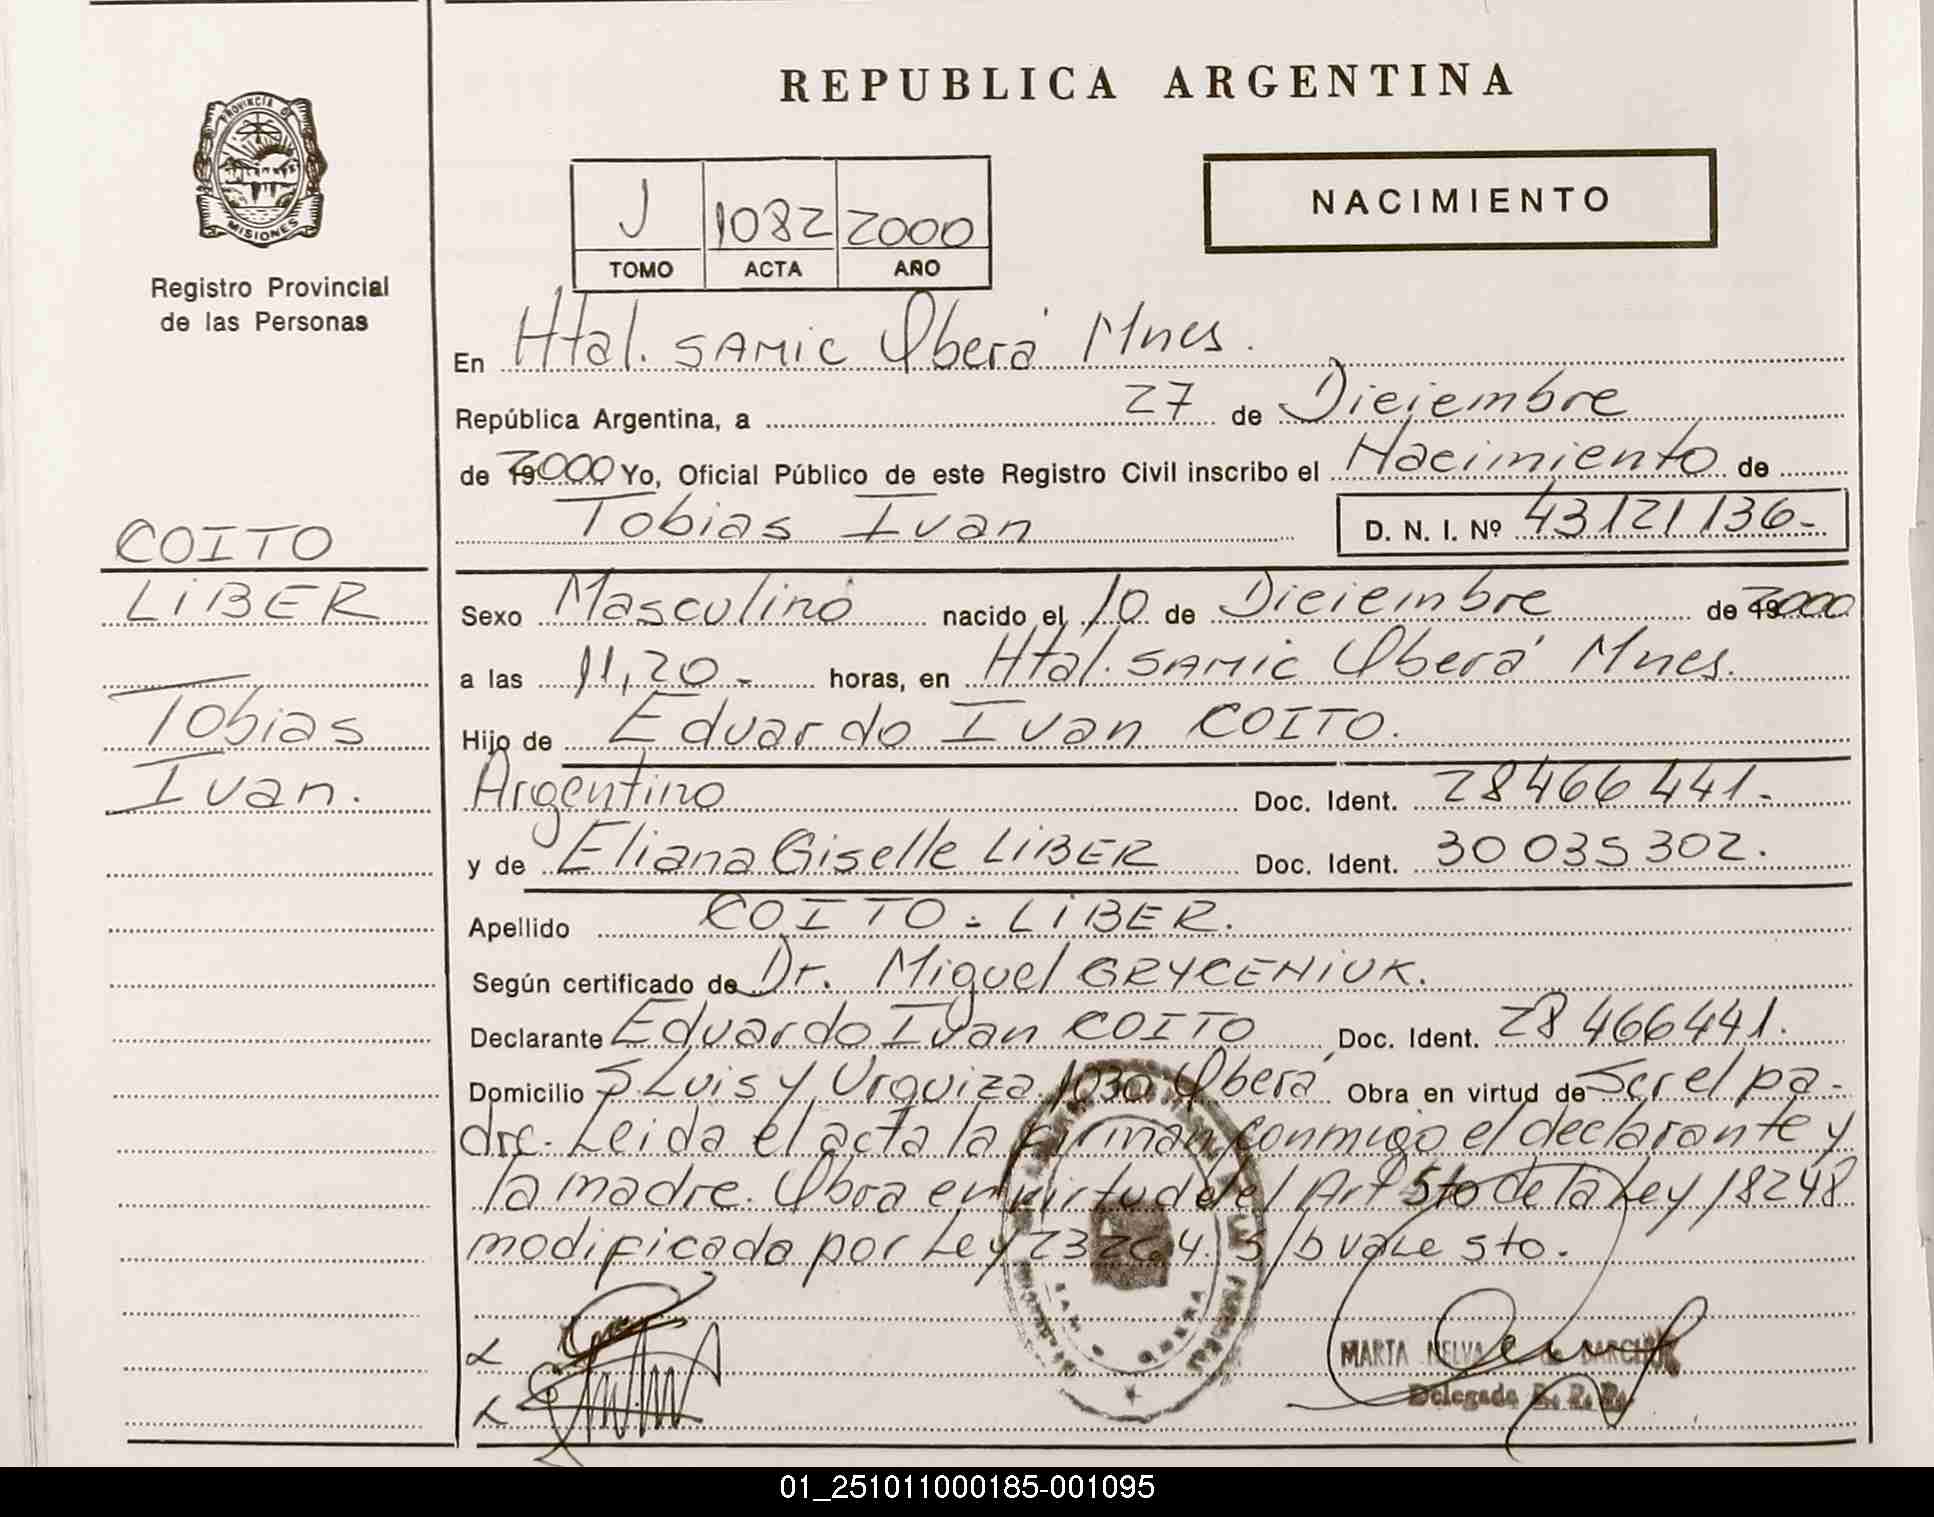 REPUBLICA ARGENTINA
PROVINCIA DE
MISIONES
Registro Provincial
de las Personas
J 1082 2000
TOMO ACTA AÑO
NACIMIENTO
En Htal. SAMIC Oberá Mnes.
República Argentina, a 27 de Diciembre
de 2000 Yo, Oficial Público de este Registro Civil inscribo el Nacimiento de
Tobias Ivan D. N. I. Nº 43121136-
COITO
LIBER
Tobias
Ivan.
Sexo Masculino nacido el 10 de Diciembre de 2000
a las 11,20- horas, en Htal. SAMIC Oberá Mnes.
Hijo de Eduardo Ivan COITO.
Argentino Doc. Ident. 28466441.-
y de Eliana Giselle LIBER Doc. Ident. 30 035 302.
Apellido COITO - LIBER.
Según certificado de Dr. Miguel GRYCENIUK.
Declarante Eduardo Ivan COITO Doc. Ident. 28 466441.
Domicilio S. Luis y Urquiza 1030 Oberá Obra en virtud de Ser el pa-
dre. Leida el acta la firman conmigo el declarante y
la madre. Obra en virtud del Art 5to de la Ley 18248
modificada por Ley 23264. S/b vale 5to.
MARTA NELVA de
Delegada R. P. P.
OBERA
01_251011000185-001095